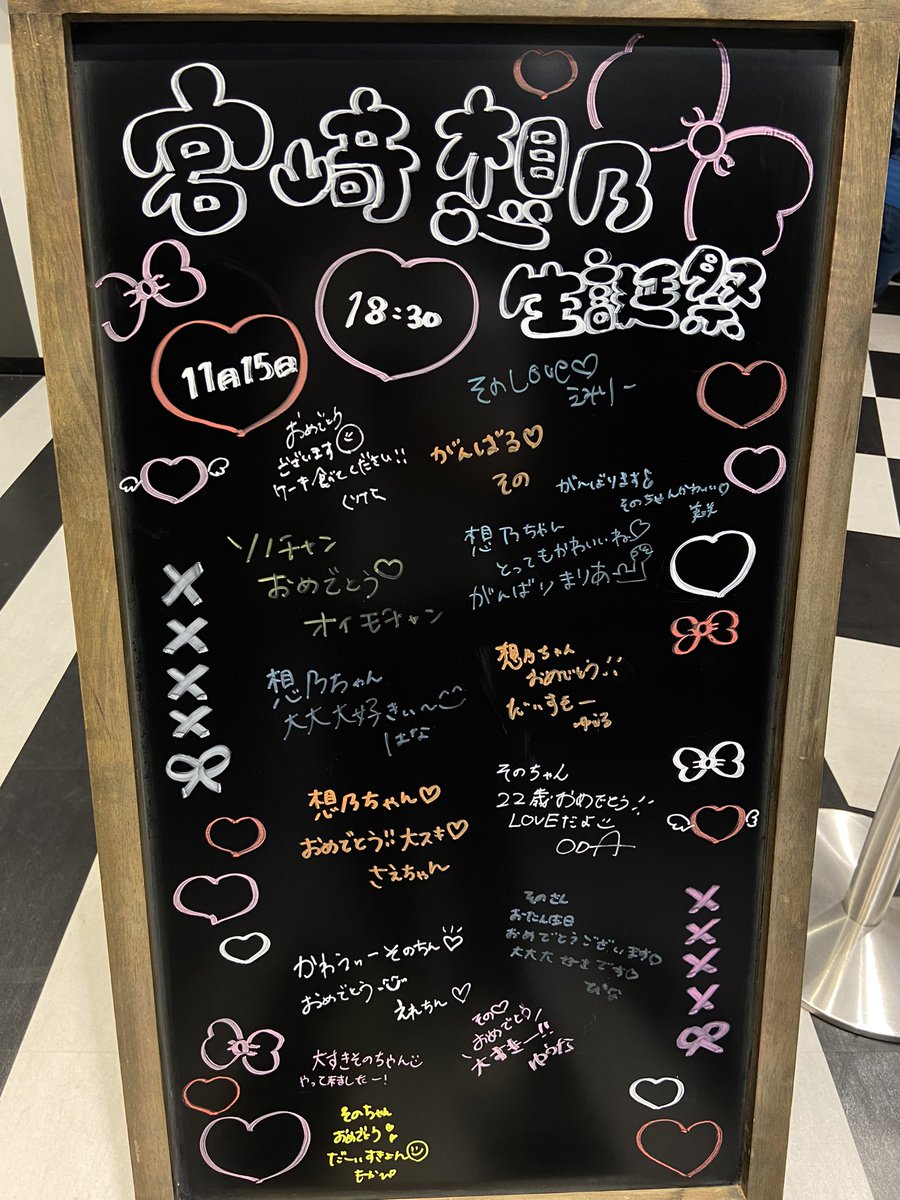 宮崎想乃
生誕祭
11月15日
18:30
そのLove♡
おめでとう
ございます
ケーキ食べてください!!
がんばる♡
その
がんばります
そのちゃんかわいい♡
ソノチャン
おめでとう♡
オイモチャン
想乃ちゃん
とってもかわいいね♡
がんばりまりあ
想乃ちゃん
大大大好きぃ〜
はな
想乃ちゃん
おめでとう!!
だいすきー
ゆうる
想乃ちゃん♡
おめでとう!! 大スキ♡
さえちゃん
そのちゃん
22歳おめでとう!!
LOVEだよ
ODA
かわうぃーそのちん♡
おめでとう
えれちん♡
そのさん
おたんじょうび
おめでとうございます♡
大大大好きです♡
ひな
その♡
おめでとう!
大すきー!!
ゆうな
大すきそのちゃん
やって来ましたー!
そのちゃん
おめでとう!
だーいすきょん